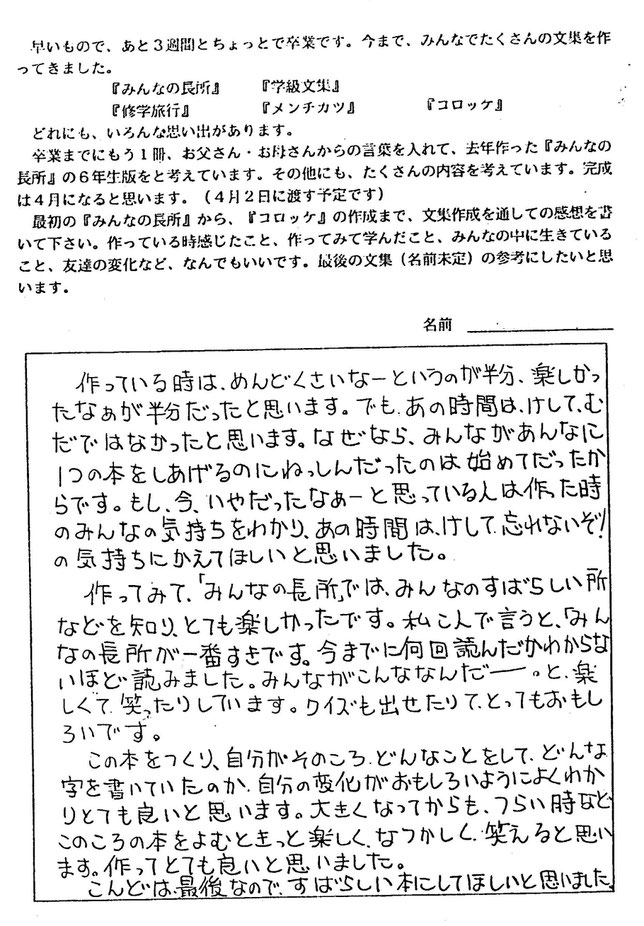 早いもので、あと３週間とちょっとで卒業です。今まで、みんなでたくさんの文集を作
ってきました。
『みんなの長所』　『学級文集』
『修学旅行』　『メンチカツ』　『コロッケ』
どれにも、いろんな思い出があります。
卒業までにもう１冊、お父さん・お母さんからの言葉を入れて、去年作った『みんなの
長所』の６年生版をと考えています。その他にも、たくさんの内容を考えています。完成
は４月になると思います。（４月２日に渡す予定です）
最初の『みんなの長所』から、『コロッケ』の作成まで、文集作成を通しての感想を書
いて下さい。作っている時感じたこと、作ってみて学んだこと、みんなの中に生きている
こと、友達の変化など、なんでもいいです。最後の文集（名前未定）の参考にしたいと思
います。
名前
作っている時は、めんどくさいなーというのが半分、楽しかっ
たなぁが半分だったと思います。でも、あの時間は、けして、む
だではなかったと思います。なぜなら、みんながあんなに
1つの本をしあげるのにねっしんだったのは始めてだったか
らです。もし、今、いやだったなぁーと思っている人は作った時
のみんなの気持ちをわかり、あの時間は、けして、忘れないぞ!
の気持ちにかえてほしいと思いました。
作ってみて、「みんなの長所」では、みんなのすばらしい所
などを知り、とても楽しかったです。私こ人で言うと、「みん
なの長所が一番すきです。今までに何回読んだかわからな
いほど読みました。みんながこんななんだー。と、楽
しくて、笑ったりしています。クイズも出せたりで、とってもおもし
ろいです。
この本をつくり、自分がそのころ、どんなことをして、どんな
字を書いていたのか、自分の変化がおもしろいようによくわか
りとても良いと思います。大きくなってからも、つらい時など
このころの本をよむときっと楽しく、なつかしく、笑えると思い
ます。作ってとても良いと思いました。
こんどは、最後なので、すばらしい本にしてほしいと思いました。